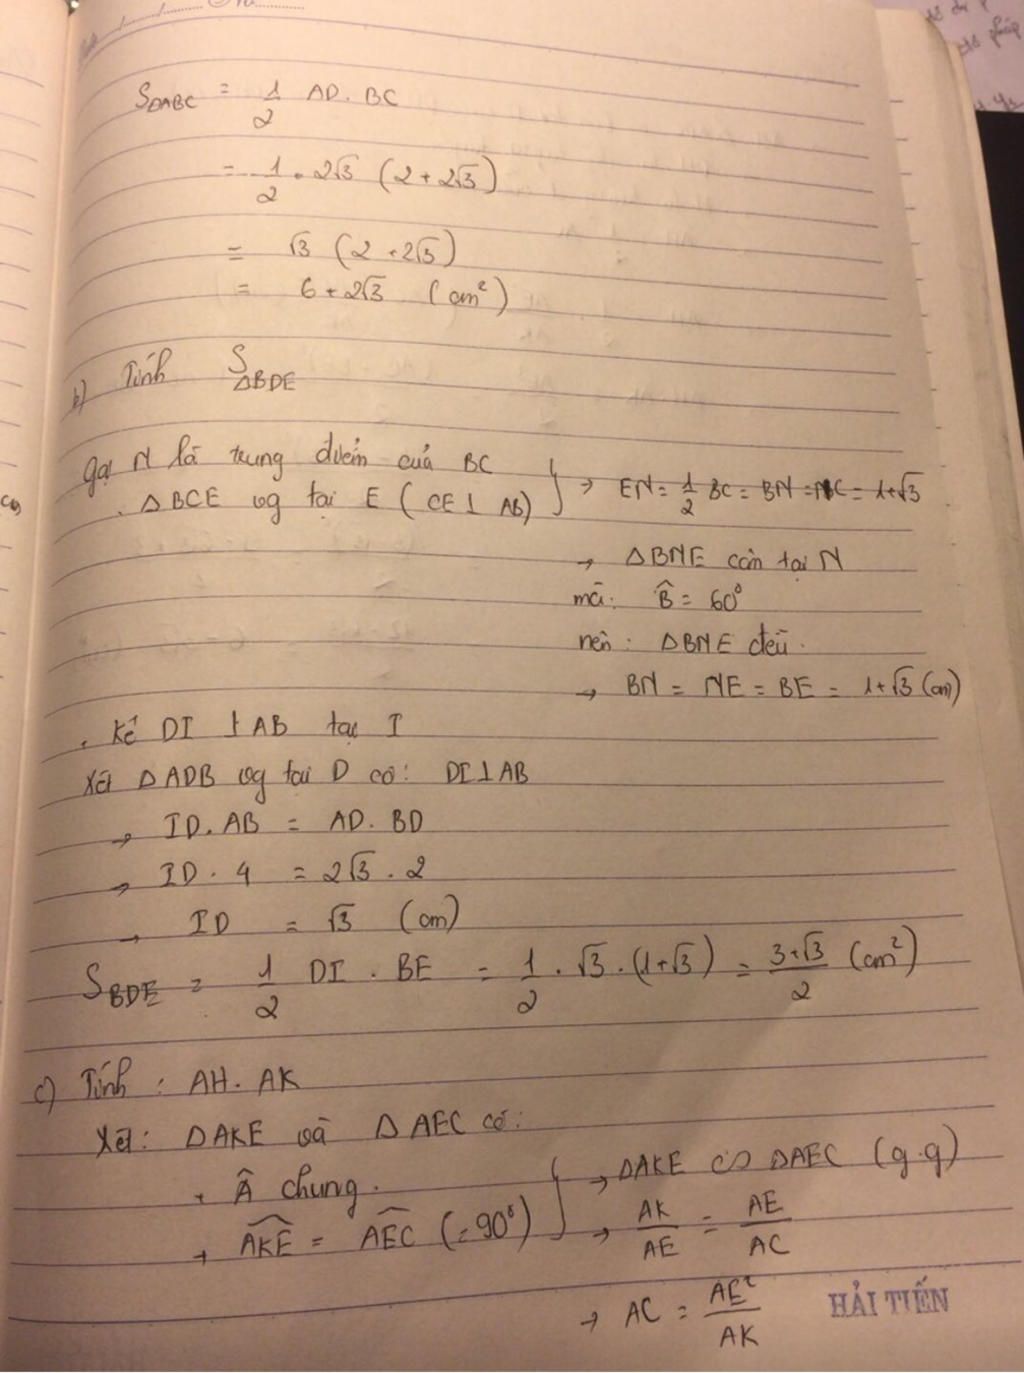 S△ABC = 1/2 AD. BC
= 1/2 . 2√3 (2 + 2√3)
= √3 (2 + 2√3)
= 6 + 2√3 (cm²)
b) Tính S△BDE
Gọi N là trung điểm của BC
. △BCE vg tại E (CE ⊥ AB) } → EN = 1/2 BC = BN = NC = 1+√3
→ △BNE cân tại N
mà: B̂ = 60°
nên : △BNE đều.
→ BN = NE = BE = 1+√3 (cm)
. Kẻ DI ⊥ AB tại I
Xét △ADB vg tại D có: DI⊥AB
→ ID. AB = AD. BD
→ ID . 4 = 2√3 . 2
→ ID = √3 (cm)
SBDE = 1/2 DI . BE = 1/2 . √3 . (1+√3) = (3+√3)/2 (cm²)
c) Tính : AH. AK
Xét: △AKE và △AEC có:
+ Â chung.
+ AKE = AEC (=90°) } → △AKE ∽ △AEC (g.g)
→ AK/AE = AE/AC
→ AC = AE²/AK
HẢI TIẾN